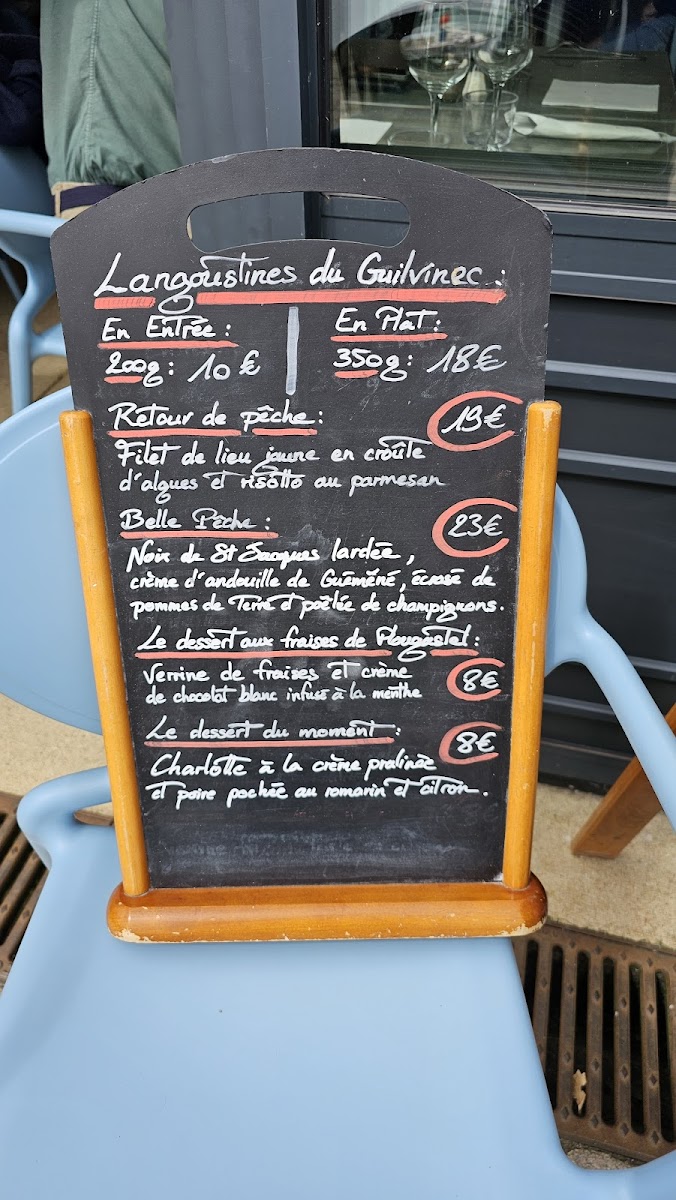 Langoustines du Guilvinec :
En Entrée : En Plat :
200g : 10 € 350g : 18€
Retour de pêche : 19€
Filet de lieu jaune en croûte
d'algues et risotto au parmesan
Belle Pêche : 23€
Noix de St Jacques lardée,
crème d'andouille de Guéméné, écrasé de
pommes de Terre et poêlée de champignons.
Le dessert aux fraises de Plougastel :
Verrine de fraises et crème 8€
de chocolat blanc infusé à la menthe
Le dessert du moment : 8€
Charlotte à la crème pralinée
et poire pochée au romarin et citron.